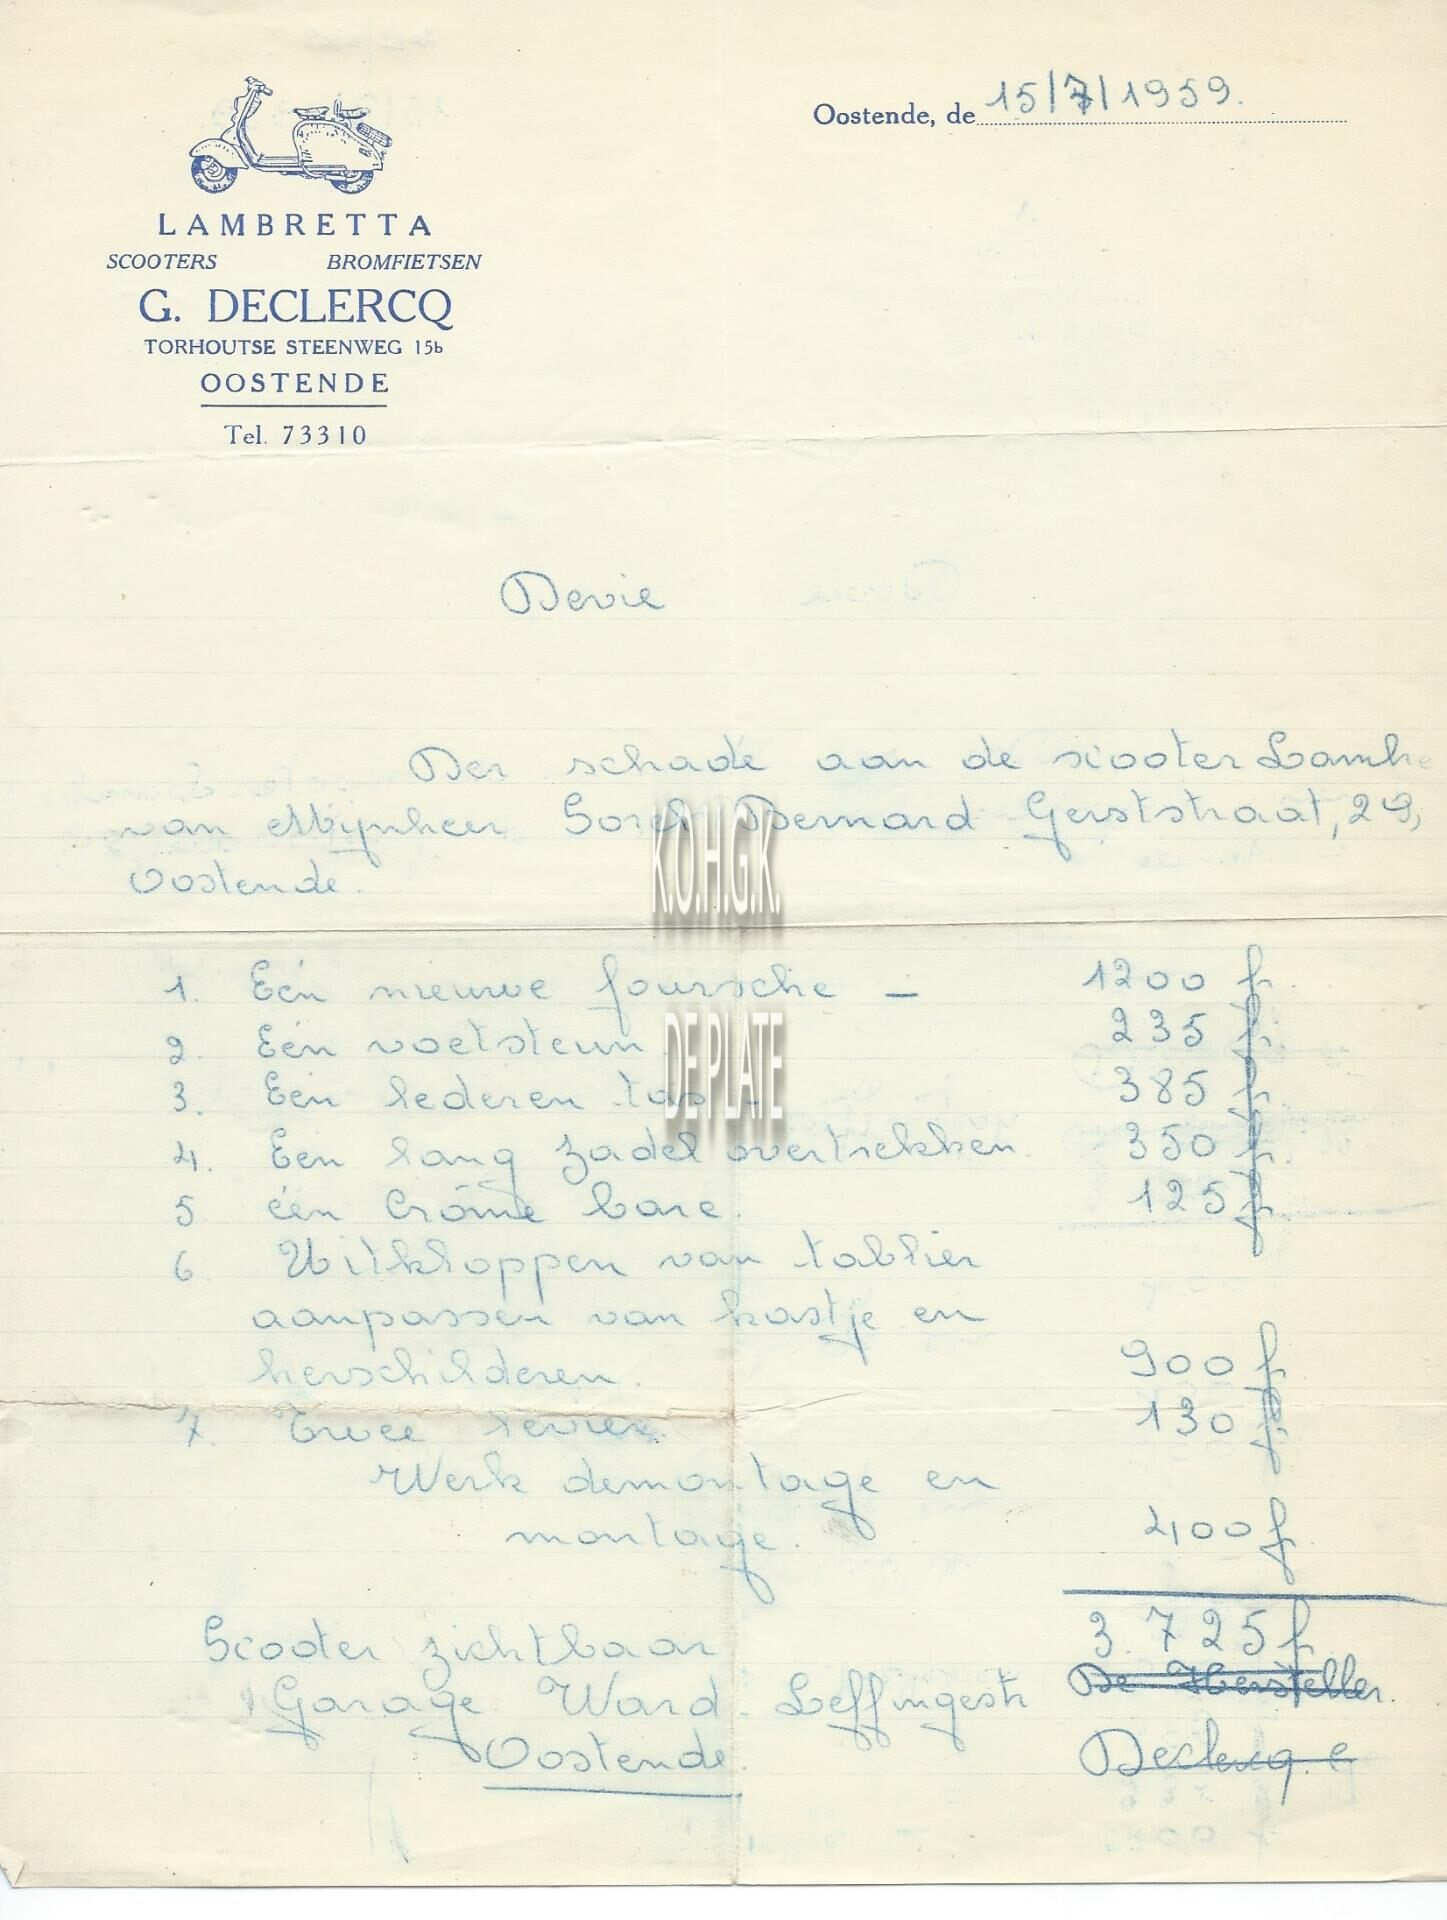 Oostende, de 15/7/1959.
LAMBRETTA
SCOOTERS BROMFIETSEN
G. DECLERCQ
TORHOUTSE STEENWEG 15b
OOSTENDE
Tel. 73310
Devie
Der schade aan de scooter Lambre
van Mijnheer Bernard Gerststraat, 29,
Oostende.
K.O.H.G.K.
1. Eén nieuwe foursche - 1200 fr.
DE PLATE
2. Eén voetsteun 235 fr.
3. Eén lederen tas - 385 fr
4. Een lang zadel overtrekken. 350 fr.
5 één crôme bare. 125 fr
6. Uitkloppen van tablier
aanpassen van kastje en
herschilderen. 900 fr
7. Twee leviers. 130 fr
Werk demontage en
montage. 400 fr.
3.725 fr
Scooter zichtbaar
Garage Ward. Leffingestr De Hersteller.
Oostende. Declercq. G